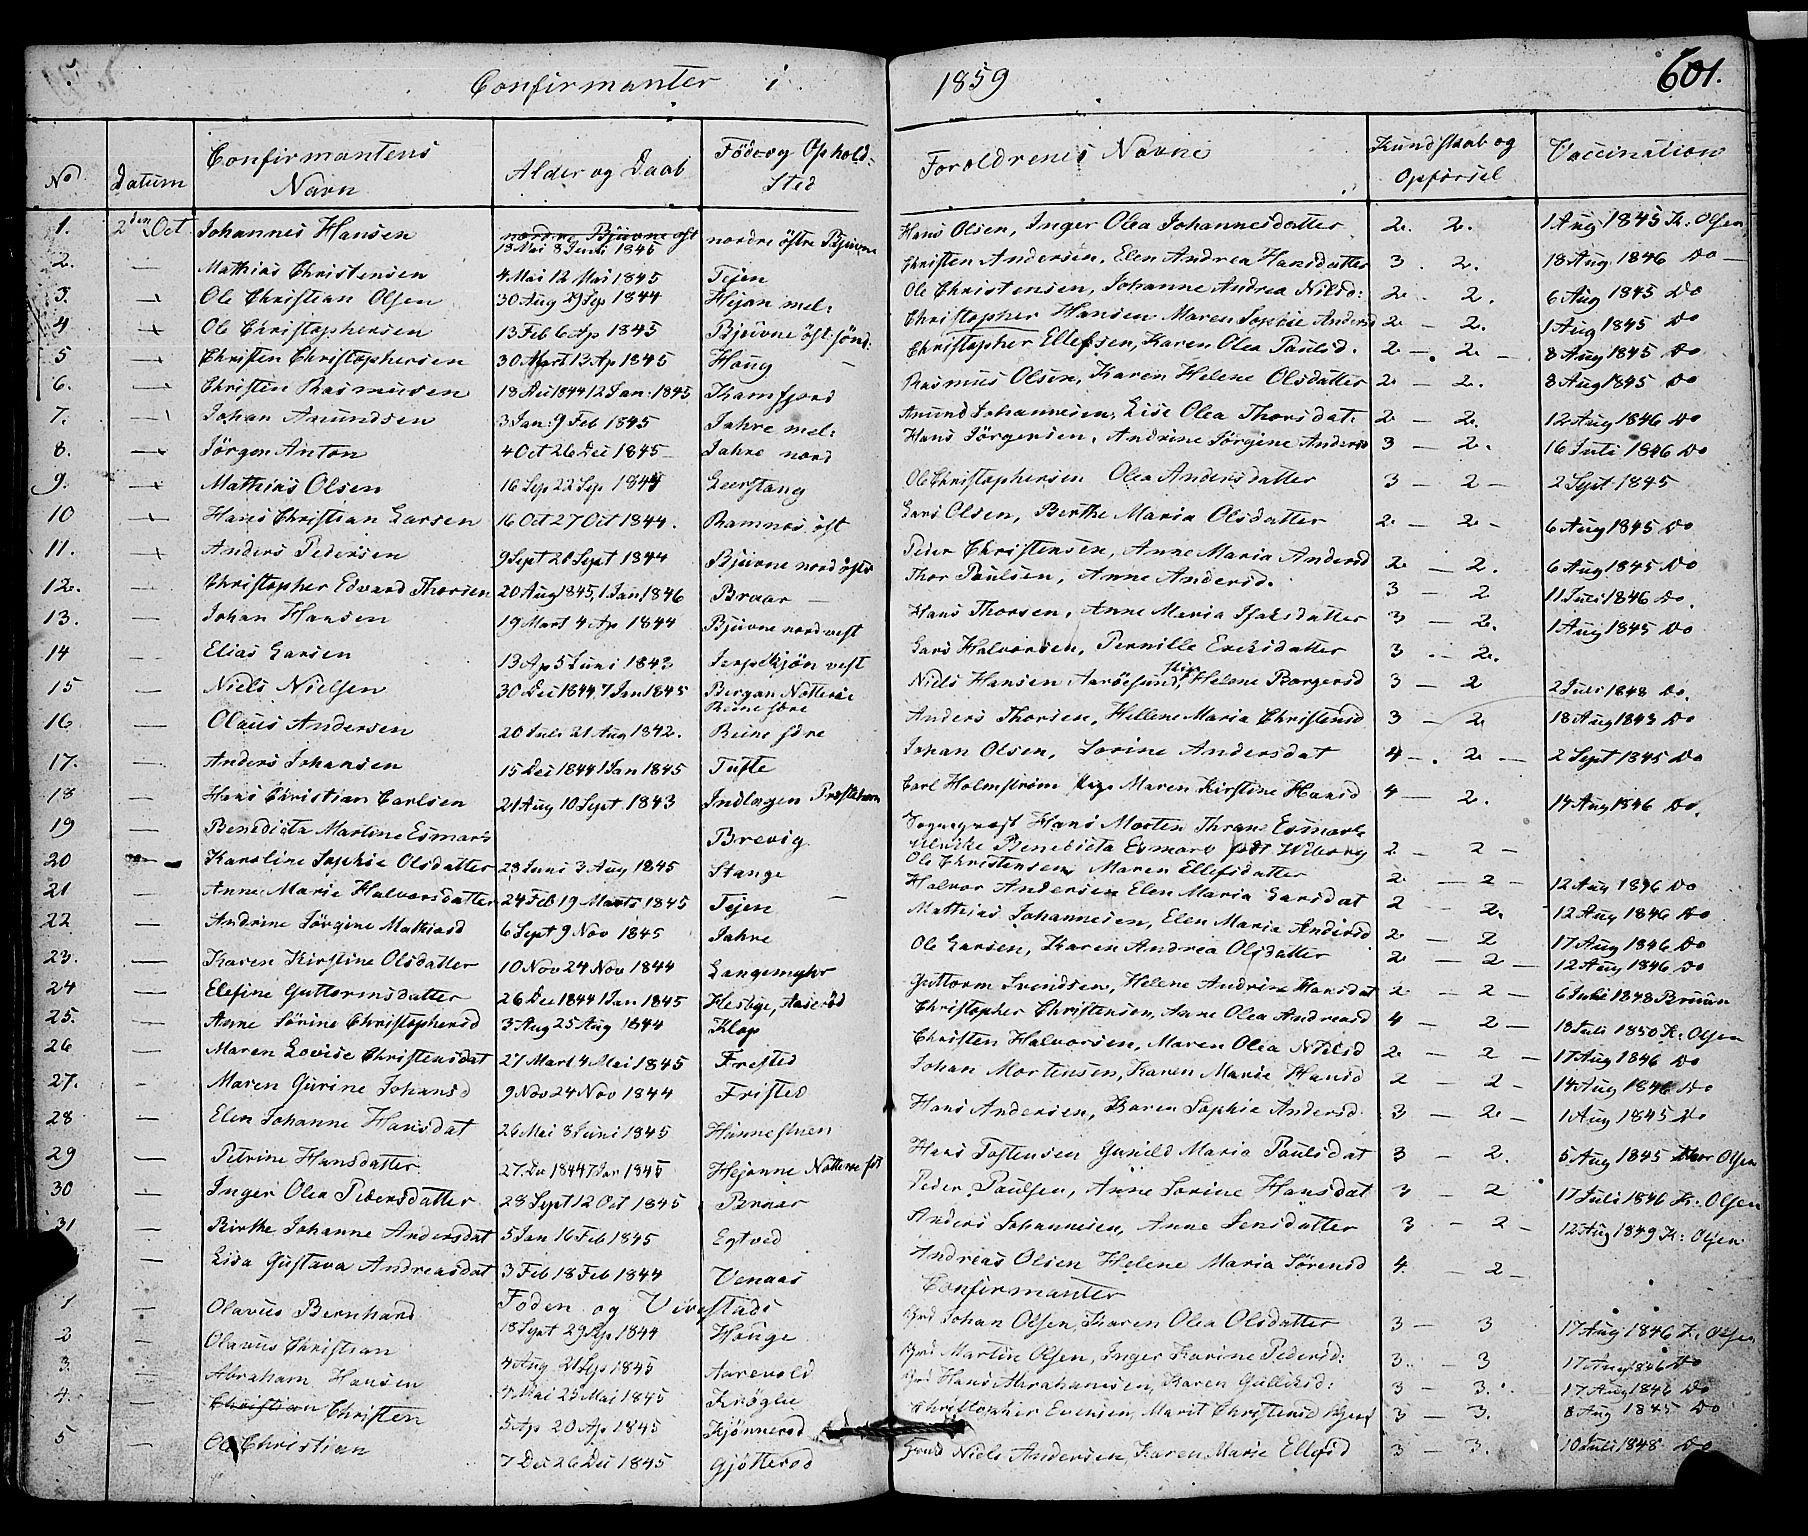 Confirmanter i 1859 601.
No Datum Confirmantens Navn Alder og Daab Föde og Ophold-Sted Foreldrenes Navne Kundskab og Opförsel Vaccination
1. 2den Oct Johannes Hansen 18 Mai 8 Juni 1845 nordre östre Bjuvne Hans Olsen, Inger Olea Johannesdatter 2. 2. 1 Aug 1845 K. Olsen
2. — Mathias Christensen 4 Mai 12 Mai 1845 Tejen Christen Andersen, Elen Andrea Hansdatter 3. 2. 18 Aug 1846 Do
3. — Ole Christian Olsen 30 Aug 29 Sep 1844 Hejan mel: Ole Christensen, Johanne Andrea Nilsd: 2 - 2. 6 Aug 1845 Do
4 — Ole Christophersen 13 Feb 6 Ap 1845 Bjuvne öst sönd: Christopher Hansen Maren Sophie Andersd 2 - 2. 1 Aug 1845 Do
5 — Christen Christophersen 30 Mart 13 Ap 1845 Haug Christopher Ellefsen, Karen Olea Paulsd. 2 - 2 - 8 Aug 1845 Do
6. — Christen Rasmusen 18 Dec 1844 12 Jan: 1845 Kamfjord Rasmus Olsen, Karen Helene Olsdatter 2 - 2. 8 Aug 1845 Do
7. — Johan Amundsen 3 Jan: 9 Feb 1845 Jahre mel: Amund Johannesen, Lise Olea Thorsdat: 2 - 2. 12 Aug 1846 Do
8. — Jörgen Anton 4 Oct 26 Dec 1845 Jahre nord Hans Jörgensen, Andrine Jörgine Andersd 3 - 2. 16 Juli 1846 Do
9. — Mathias Olsen 16 Sep 22 Sep 1845 Leerstang Ole Christophersen Olea Andersdatter 3 - 2 - 2 Sept 1845
10 — Hans Christian Larsen 16 Oct 27 Oct 1844. Ramnas öst Lars Olsen, Berthe Maria Olsdatter 2 - 2 - 6 Aug 1845 Do
11. — Anders Pedersen 9 Sept 20 Sept 1844 Bjuvne nord östr Peder Christensen, Anne Maria Andersd 2 - 2. 6 Aug 1845 Do
12. — Christopher Edvard Thorsen 20 Aug 1845, 1 Jan 1846 Braar — Thor Paulsen, Anne Andersd. 3 - 2 11 Juli 1846 Do.
13. — Johan Hansen 19 Mart 4 Ap 1844 Bjuvne nordvest Hans Thorsen, Anne Maria Isaksdatter 3 - 2. 1 Aug 1845 Do
14 — Elias Larsen 13 Ap 5 Juni 1842 vest Lars Halvorsen, Pernille Ericksdatter 3. - 2.
15 — Niels Nielsen 30 Dec 1844 7 Jan 1845 Bergan Nötterøe Niels Hansen Aaröesund, Helene Borgersd 3 - 2 2 Juli 1848 Do.
16 — Olaus Andersen 20 Juli 21 Aug 1842. Reine söre Anders Thorsen, Hellene Maria Christensd 3 - 2 18 Aug 1843 Do
17. — Anders Johansen 15 Dec 1844 1 Jan 1845 Tufte Johan Olsen, Sorine Andersdat 4 -. 2 - 2 Sept 1845 Do
18 — Hans Christian Carlsen 21 Aug 10 Sept 1843 Indlagen Carl Holmström Maren Kirstine Hansd 4 - 2. 14 Aug 1846 Do.
19 — Benedicta Martine Esmark Brevig Sogneprest Hans Morten Thrane Esmark
Ulrike Benedicta Esmark födt Wiborg 2 - 2 -
20 — Karoline Sophie Olsdatter 28 Juni 3 Aug 1845 Stange Ole Christensen Maren Ellefsdatter 2 - 2 - 12 Aug 1846 Do
21 — Anne Marie Halvorsdatter 24 Feb 19 Marts 1845 Tejen Halvor Andersen Elen Maria Larsdat 2 - 2. 12 Aug 1846 Do
22. — Andrine Jörgine Mathiasd 6 Sept 9 Nov 1845 Jahre Mathias Johannesen, Elen Maria Andersd 2 - 2 17 Aug 1846 Do
23. — Karen Kirstine Olsdatter 10 Nov 24 Nov 1844 Langemyhr Ole Larsen, Karen Andrea Olsdatter 2 - 2 - 12 Aug 1846 Do
24 — Elefine Guttormsdatter 26 Dec 1844 1 Jan 1845 Guttorm Svendsen, Helene Andrine Hansdat 2 - 2 - 6 Juli 1848 Bruun
25. — Anne Sörine Christophersd 3 Aug 25 Aug 1844 Klop Christopher Christensen, Anne Olea Andreasd 4 - 2 - 18 Juli 1850 K. Olsen
26 — Maren Lovise Christensdat 27 Mart 4 Mai 1845 Frested Christen Halvorsen, Maren Olea Nielsd 2 - 2 - 17 Aug 1846 Do
27. — Maren Gurine Johansd 9 Nov 24 Nov 1844 Fristed Johan Mortensen, Karen Marie Hansd 2 - 2 - 14 Aug 1846 Do
28 — Elen Johanne Hansdat 26 Mai 8 Juni 1845 Hunnestuen Hans Andersen, Karen Sophie Andersd. 3 - 2 - 1 Aug 1845 Do
29 — Petrine Hansdatter 27 De 1844 7 Jan 1845 Hejanne Hans Tostensen Gunild Maria Paulsdat 3 - 2. 5 Aug 1845 Olsen
30 — Inger Olea Pedersdatter 28 Sept 12 Oct 1845 Braar Peder Paulsen, Anne Sorine Hansdat 3 - 2 17 Juli 1846 K. Olsen
31 — Birthe Johanne Andersdat 5 Jan 16 Feb 1845 Egtved Anders Johannesen, Anne Jensdatter 3 - 2 - 12 Aug 1849 K: Olsen
— Lisa Gustava Andreasdat 3 Feb 18 Feb 1844 Venaas Andreas Olsen Helene Maria Sörensd 4. - 2 -
Foden og Virestads Confirmanter
1 — Olavus Bernhard 18 Sept 29 Sep 1844 Hauge Grd Johan Olsen, Karen Olea Olsdatter 3 - 3 17 Aug 1846 K. Olsen
2 — Olavus Christian 4 Aug 21 Sep 1845 Aarevold Grd Martin Olsen, Inger Karine Pedersd: 3. - 3 17 Aug 1846 Do
3. — Abraham Hansen 4 Mai 25 Mai 1845 Knöglie Grd Hans Abrahamsen, Karen Gulliksd: 3 - 3. 17 Aug 1846 Do
4. — Christian Christen 5 Ap 20 Ap 1845 Kjönnerod Christopher Evensen, Marit Christensd 3 - 3. 8 Aug 1845 Do
5 — Ole Christian 7 Dec 26 Dec 1845 Gjötterod Grmd Niels Andersen, Karen Marie Ellefsd 3 - 3. 10 Juli 1848 Do